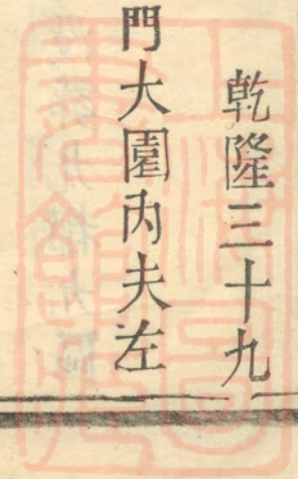 乾隆三十九
門大園內夫左